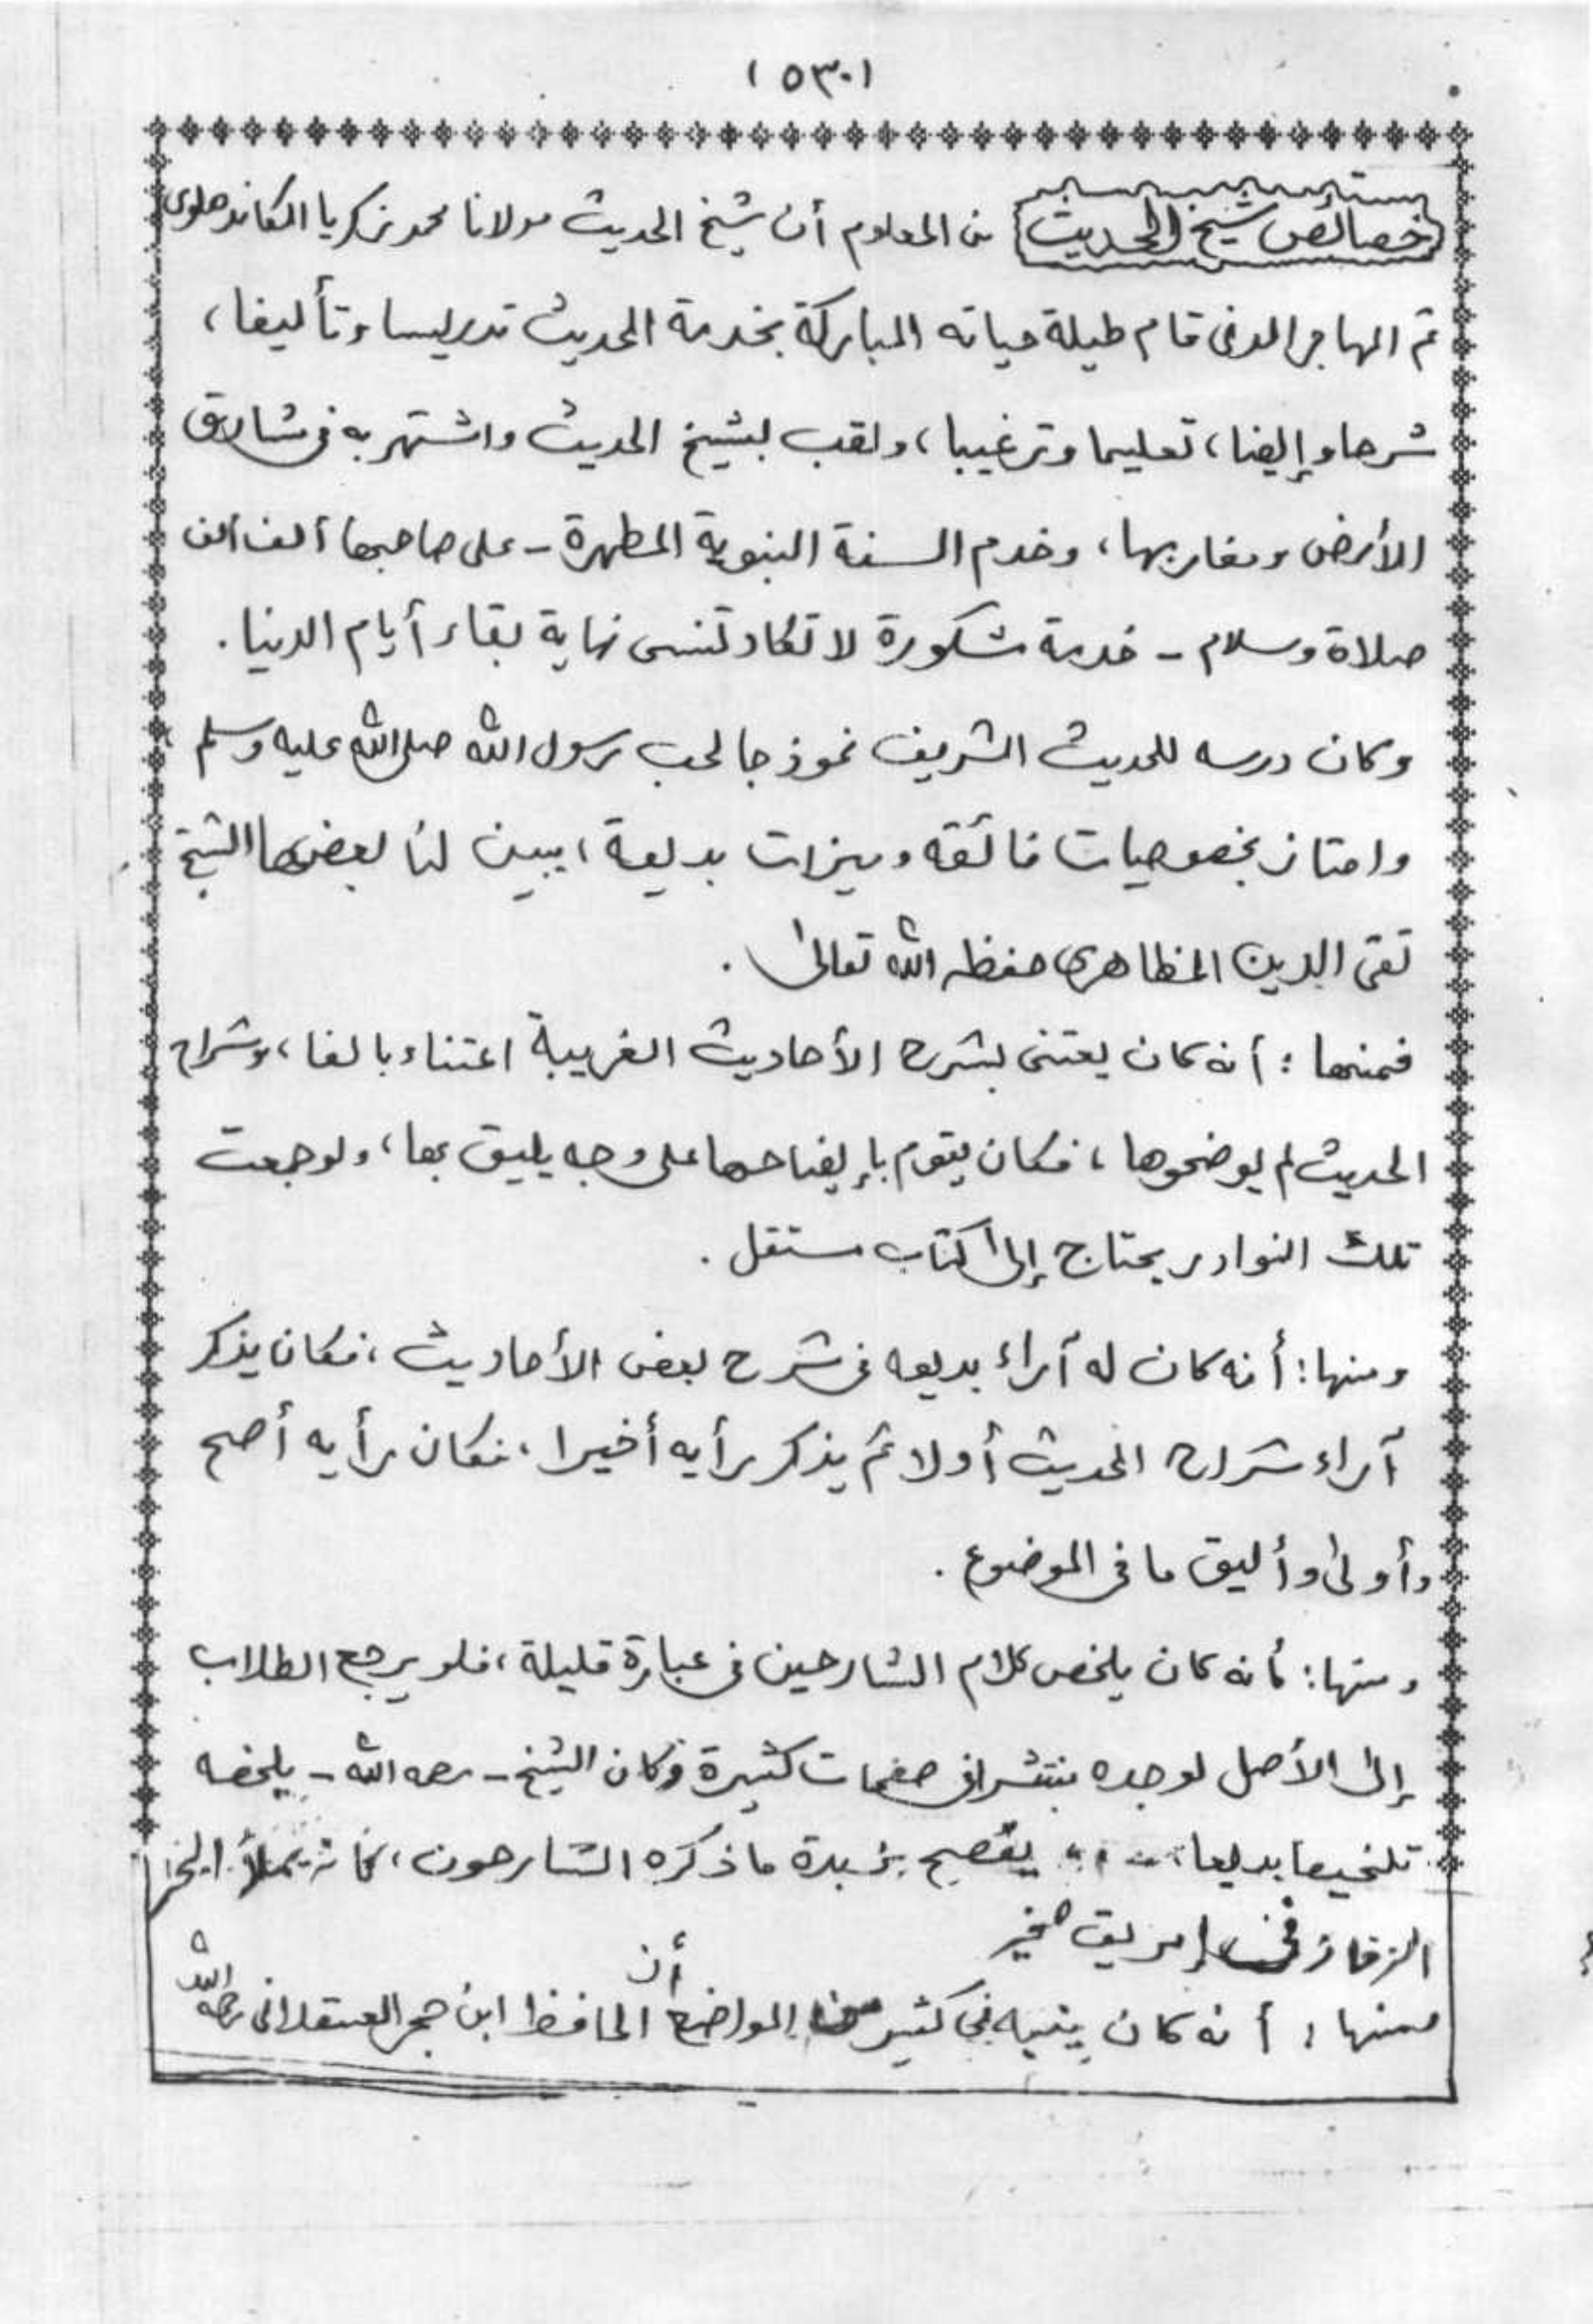 (٥٣٠)
خصائص شيخ الحديث من المعلوم أن شيخ الحديث مولانا محمد زكريا الكاندهلوى
ثم المهاجر المدنى قام طيلة حياته المباركة بخدمة الحديث تدريسا وتأليفا،
شرحا وإيضا، تعليما وترغيبا، ولقب بشيخ الحديث واشتهر به فى مشارق
الأرض ومغاربها، وخدم السنة النبوية المطهرة - على صاحبها ألف ألف
صلاة وسلام - خدمة مشكورة لا تكاد تنسى نهاية بقاء أيام الدنيا.
وكان درسه للحديث الشريف نموذجا لحب رسول الله صلى الله عليه وسلم
وامتاز بخصوصيات فائقه وميزات بديعة، يبين لنا بعضها الشيخ
تقى الدين المظاهرى حفظه الله تعالىٰ.
فمنها: أنه كان يعتنى بشرح الأحاديث الغريبة اعتناء بالغا، وشراح
الحديث لم يوضحوها، فكان يقوم بإيضاحها على وجه يليق بها، ولو جمعت
تلك النوادر يحتاج إلىٰ كتاب مستقل.
ومنها: أنه كان له آراء بديعه فى شرح بعض الأحاديث، فكان يذكر
آراء شراح الحديث أولا ثم يذكر رأيه أخيرا، فكان رأيه أصح
وأولىٰ وأليق ما فى الموضوع.
ومنها: أنه كان يلخص كلام الشارحين فى عبارة قليلة، فلو يرجع الطلاب
إلىٰ الأصل لوجده ينتشر فى صفحات كثيرة وكان الشيخ - رحمه الله - يلخصه
تلخيصا بديعا، يفصح بزبدة ما ذكره الشارحون، كأنه يملأ البحر
الزخار فى إبريق صغير
ومنها: أنه كان ينبه فى كثير من المواضع أن الحافظ ابن حجر العسقلانى رحمه الله